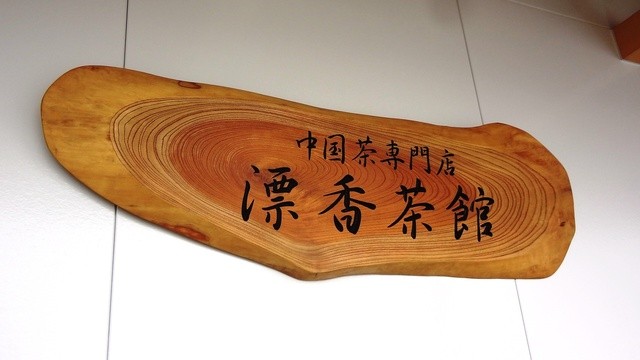 中国茶専門店
漂香茶館